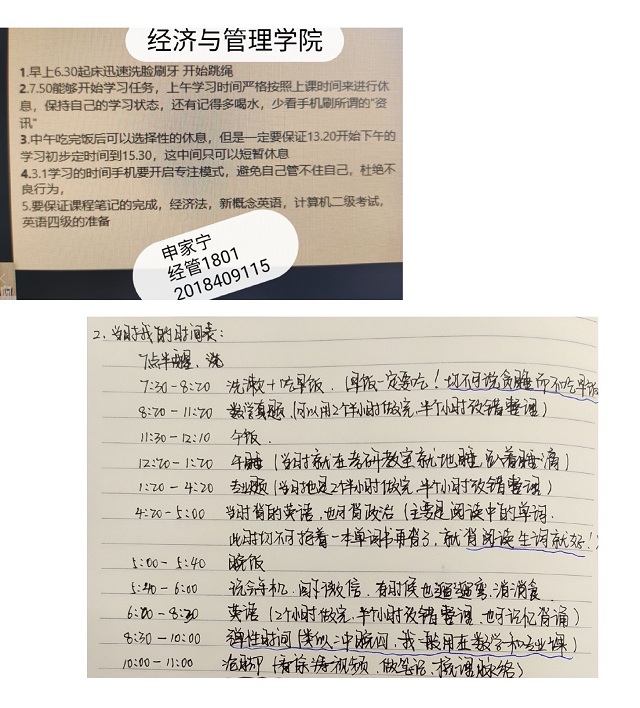 经济与管理学院
1.早上6.30起床迅速洗脸刷牙 开始跳绳
2.7.50能够开始学习任务，上午学习时间严格按照上课时间来进行休
息，保持自己的学习状态，还有记得多喝水，少看手机刷所谓的“资
讯”
3.中午吃完饭后可以选择性的休息，但是一定要保证13.20开始下午的
学习初步定时间到15.30，这中间只可以短暂休息
4.3.1学习的时间手机要开启专注模式，避免自己管不住自己，杜绝不
良行为，
5.要保证课程笔记的完成，经济法，新概念英语，计算机二级考试，
英语四级的准备
申家宁
经管1801
2018409115
2. 当时我的时间表：
7点半醒、洗
7:30-8:20 洗漱+吃早饭．（早饭一定要吃！切不可说贪睡而不吃早饭
8:20-11:20 数学真题（可以用2个半小时做完，半个小时改错整理）
11:30-12:10 午饭．
12:20-1:20 午睡（当时就在考研教室就地睡，趴着睡滴）
1:20-4:20 专业题（当时也是2个半小时做完，半个小时改错整理）
4:20-5:00 当时背的英语，也可背政治（主要是阅读中的单词．
此时切不可抱着一本单词书再背了，就背阅读生词就好！）
5:00-5:40 晚饭
5:40-6:00 玩会手机，刷刷微信，有时候也遛遛弯，消消食．
6:00-8:30 英语（2个小时做完，半个小时改错整理，也可记忆背诵）
8:30-10:00 弹性时间（类似，中晚间，我一般用在数学和专业课）
10:00-11:00 （看 视频，做笔记，梳理脉络）